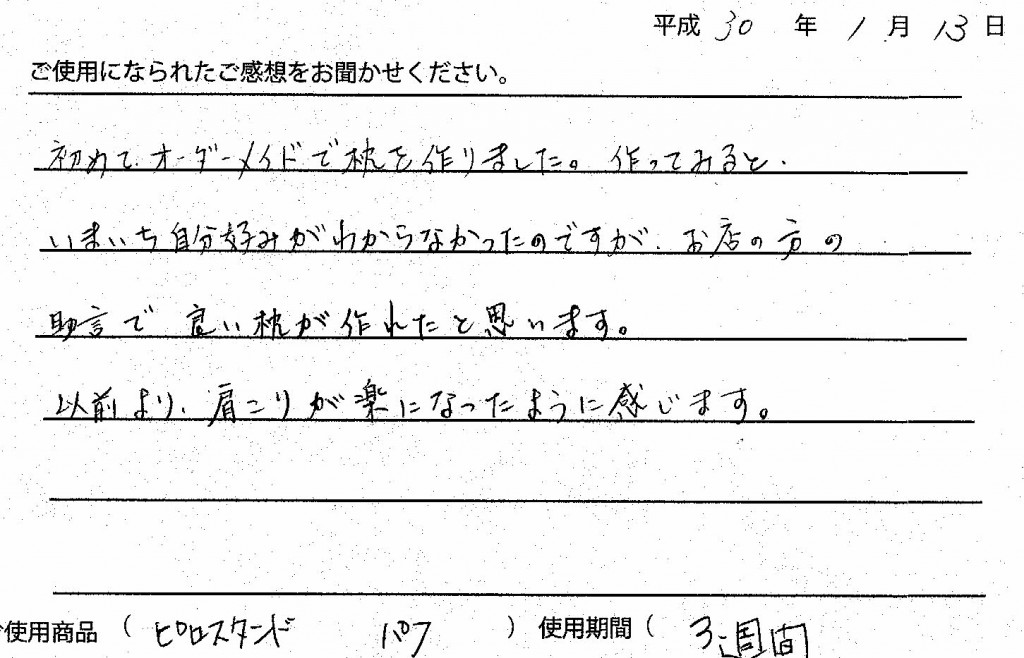 平成 30 年 1 月 13 日
ご使用になられたご感想をお聞かせください。
初めてオーダーメイドで枕を作りました。作ってみると、
いまいち自分好みがわからなかったのですが、お店の方の
助言で良い枕が作れたと思います。
以前より、肩こりが楽になったように感じます。
ご使用商品 ( ピロスタンド パフ ) 使用期間 ( 3週間